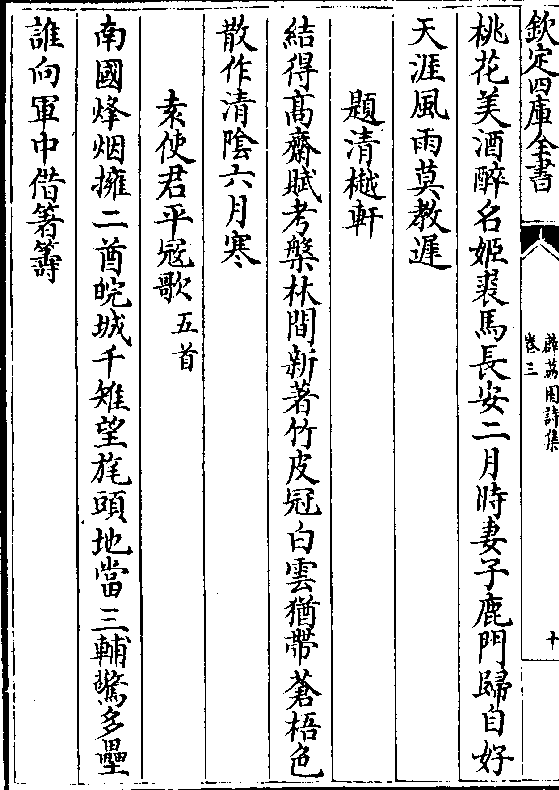 欽定四庫全書
薜荔園詩集
卷三
十
桃花美酒醉名姬裘馬長安二月時妻子鹿門歸自好
天涯風雨莫教遲
題清樾軒
結得髙齋賦考槃林間新著竹皮冠白雲猶帶蒼梧色
散作清陰六月寒
素使君平冦歌五首
南國烽烟擁二酋皖城千雉望旄頭地當三輔驚多壘
誰向軍中借箸籌